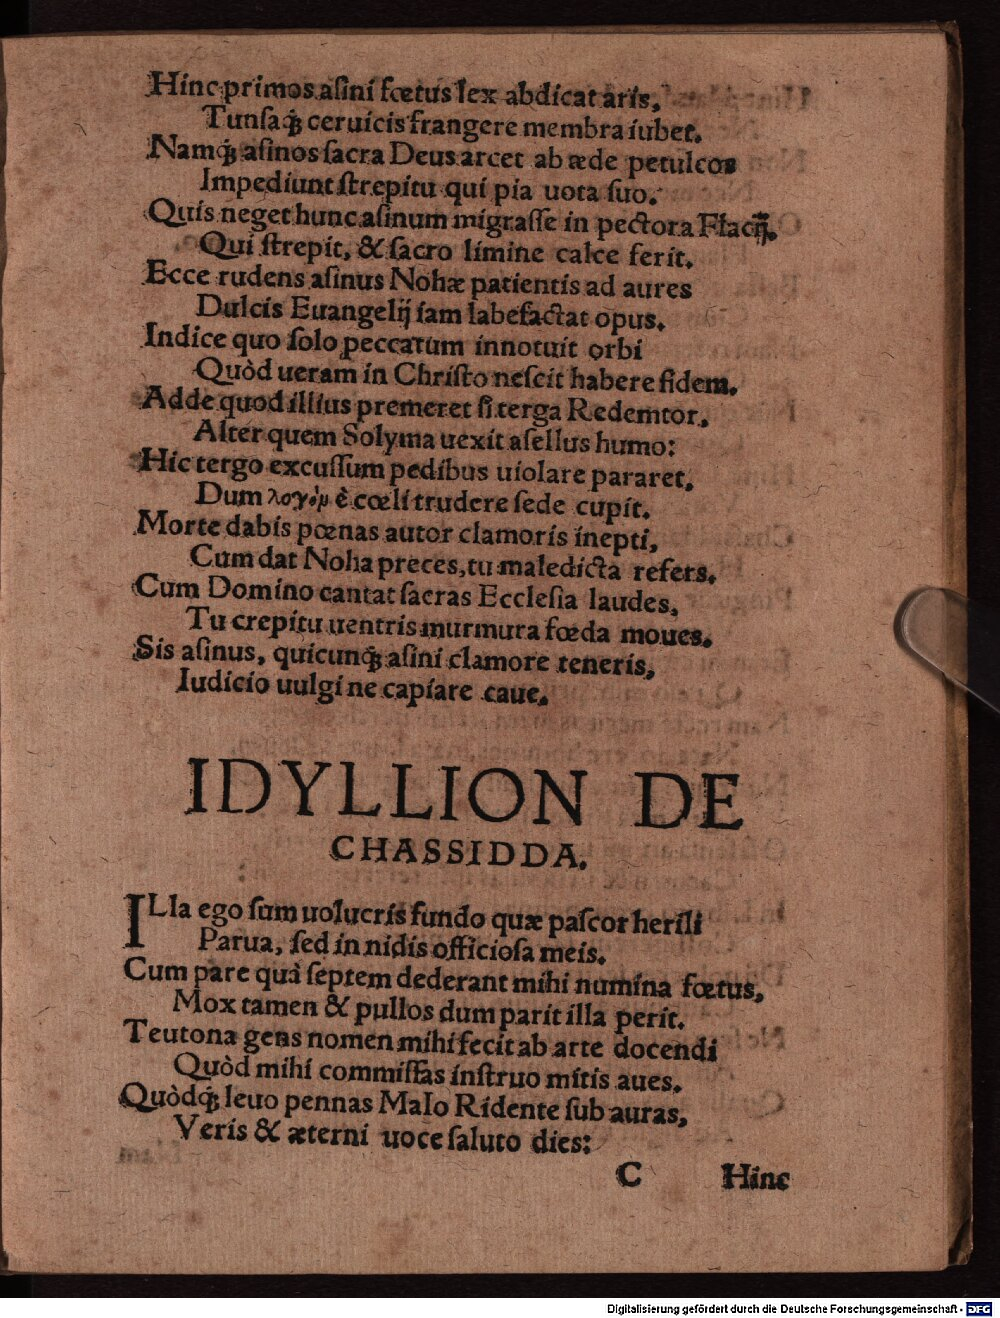 Hinc primos asini fœtus lex abdicat aris,
Tunsaqꝫ ceruicis frangere membra iubet.
Namqꝫ asinos sacra Deus arcet ab æde petulcos
Impediunt strepitu qui pia uota suo.
Quis neget hunc asinum migrasse in pectora Flacij,
Qui strepit, & sacro limine calce ferit.
Ecce rudens asinus Nohæ patientis ad aures
Dulcis Euangelij iam labefactat opus.
Indice quo solo peccatum innotuit orbi
Quòd ueram in Christo nescit habere fidem.
Adde quod illius premeret si terga Redemtor,
Alter quem Solyma uexit asellus humo:
Hic tergo excussum pedibus uiolare pararet,
Dum λογὸμ è cœli trudere sede cupit.
Morte dabis pœnas autor clamoris inepti,
Cum dat Noha preces, tu maledicta refers.
Cum Domino cantat sacras Ecclesia laudes,
Tu crepitu uentris murmura fœda moues.
Sis asinus, quicunqꝫ asini clamore teneris,
Iudicio uulgi ne capiare caue.
IDYLLION DE
CHASSIDDA.
ILla ego sum uolucris fundo quæ pascor herili
Parua, sed in nidis officiosa meis.
Cum pare quà septem dederant mihi numina fœtus,
Mox tamen & pullos dum parit illa perit.
Teutona gens nomen mihi fecit ab arte docendi
Quòd mihi commissas instruo mitis aues.
Quòdqꝫ leuo pennas MaIo Ridente sub auras,
Veris & æterni uoce saluto dies:
C Hinc
Digitalisierung gefördert durch die Deutsche Forschungsgemeinschaft - DFG